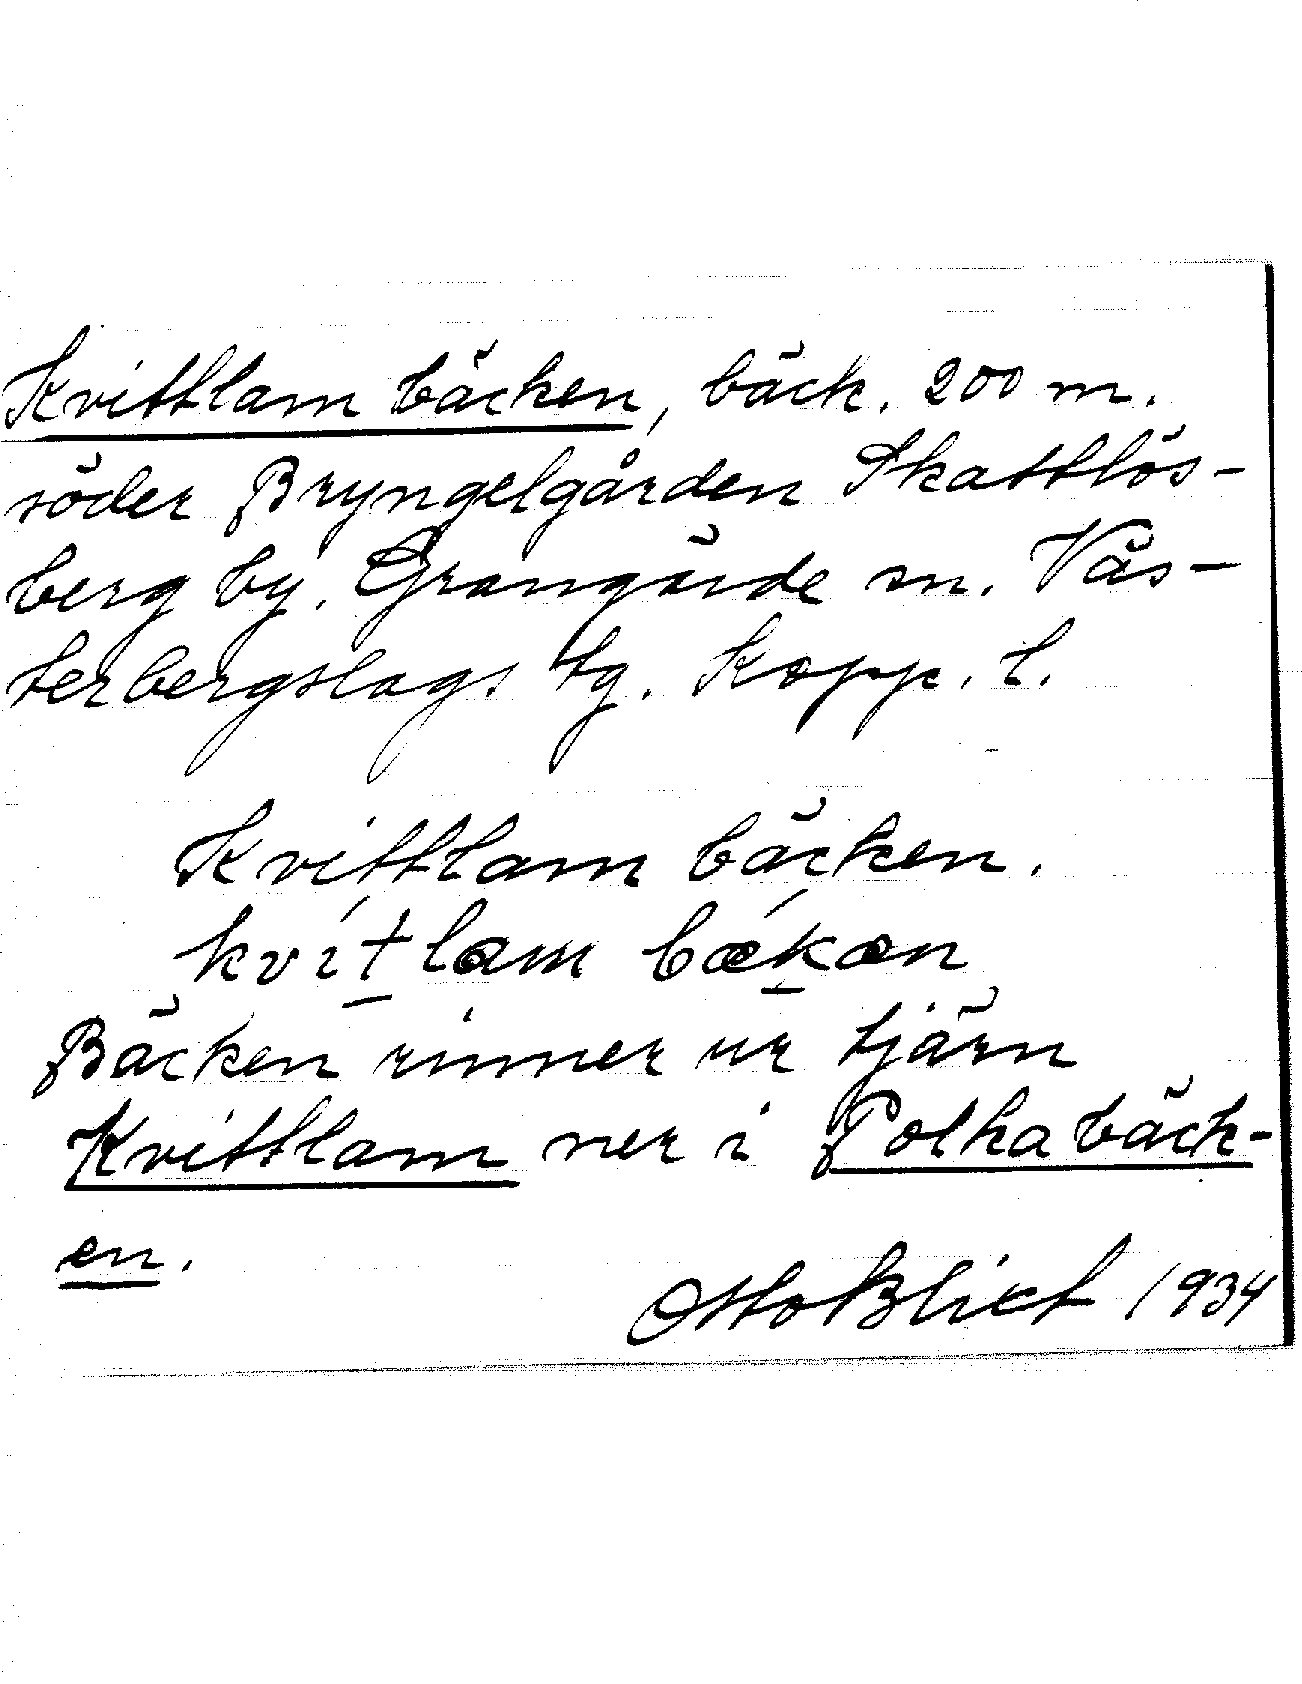 Kvittlam bäcken, bäck. 200 m.
söder Bryngelgården Skattlös-
berg by. Grangärde sn. Väs-
terbergslags tg. Kopp. l.
Kvittlam bäcken.
kvít̠lam bǽk̠æn
Bäcken rinner ur tjärn
Kvittlam ner i Polka bäck-
en.
Otto Blixt 1934